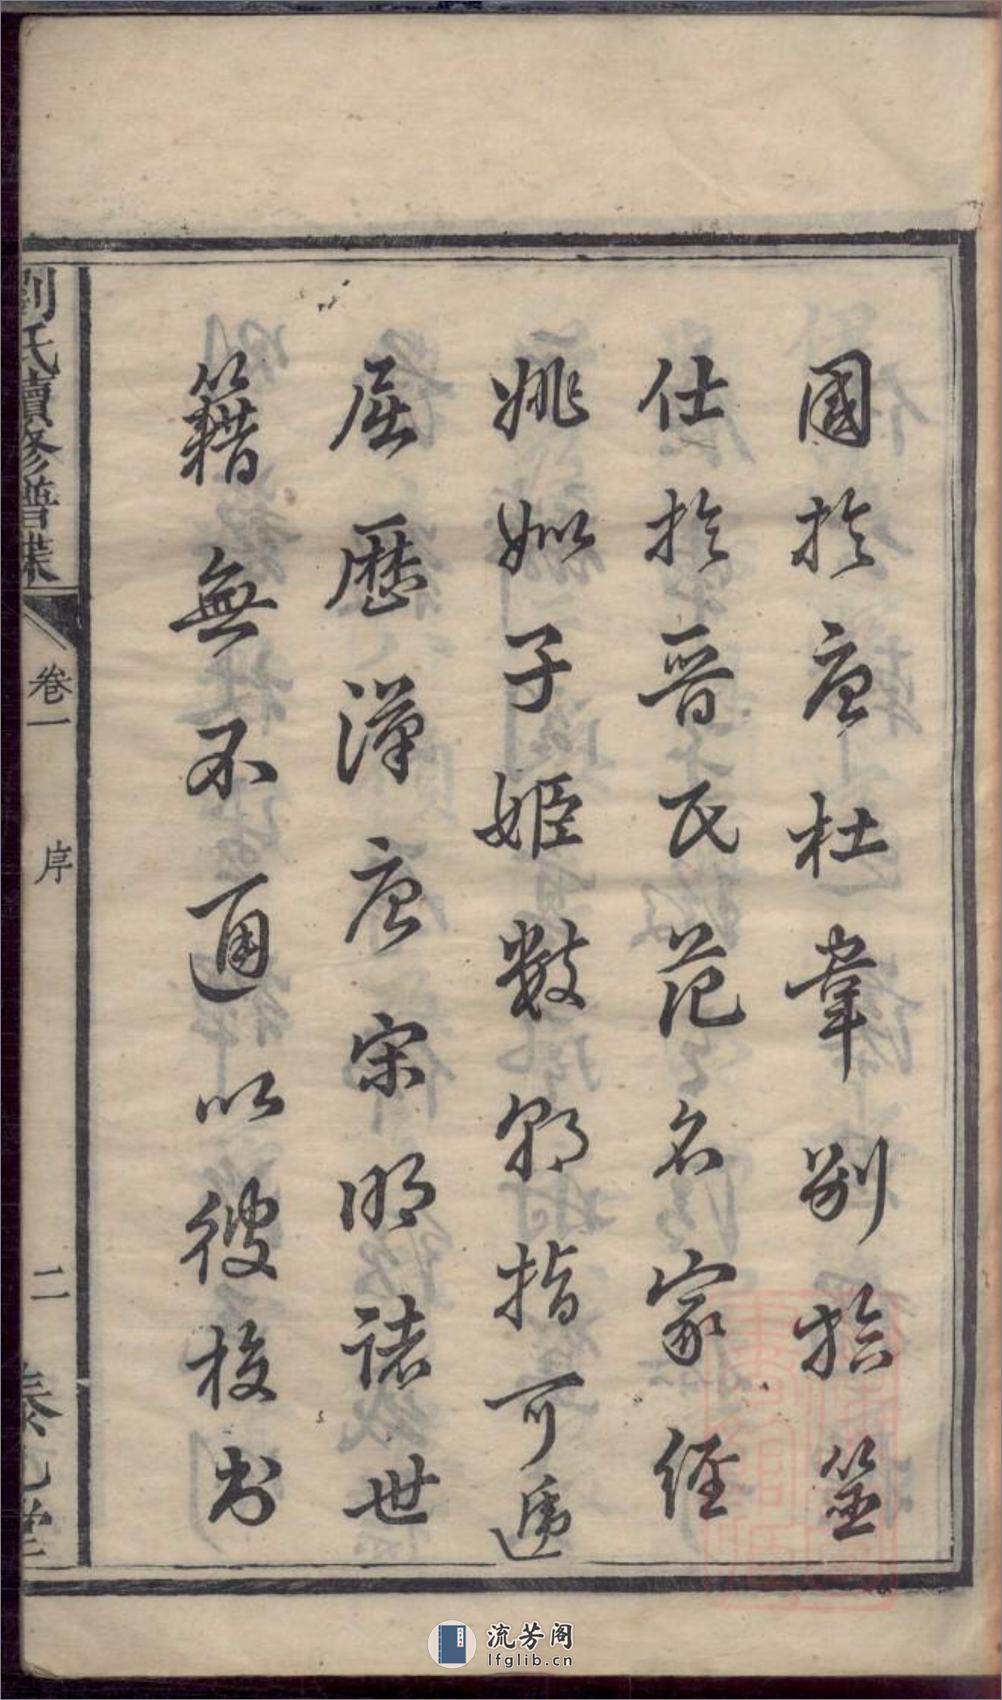 國於唐杜韋別於筮
仕於晉氏范名家經
姚姒子姬數郡指可遞
屈歷漢唐宋明諸世
籍無不通以彼校書
劉氏續修譜牒
卷一
序
二
堂
流芳阁
lfglib.cn